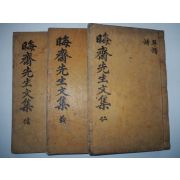 晦齋先生文集 仁
晦齋先生文集 義
晦齋先生文集 信